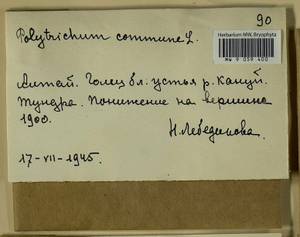 90
Polytrichum commune L.
Herbarium MW, Bryophyta
MW 9 059 400
Алтай. Голец бл. устья р. Кануй.
Тундра. Понижение на вершине
1900.
Н. Лебединова
17-VII-1945.